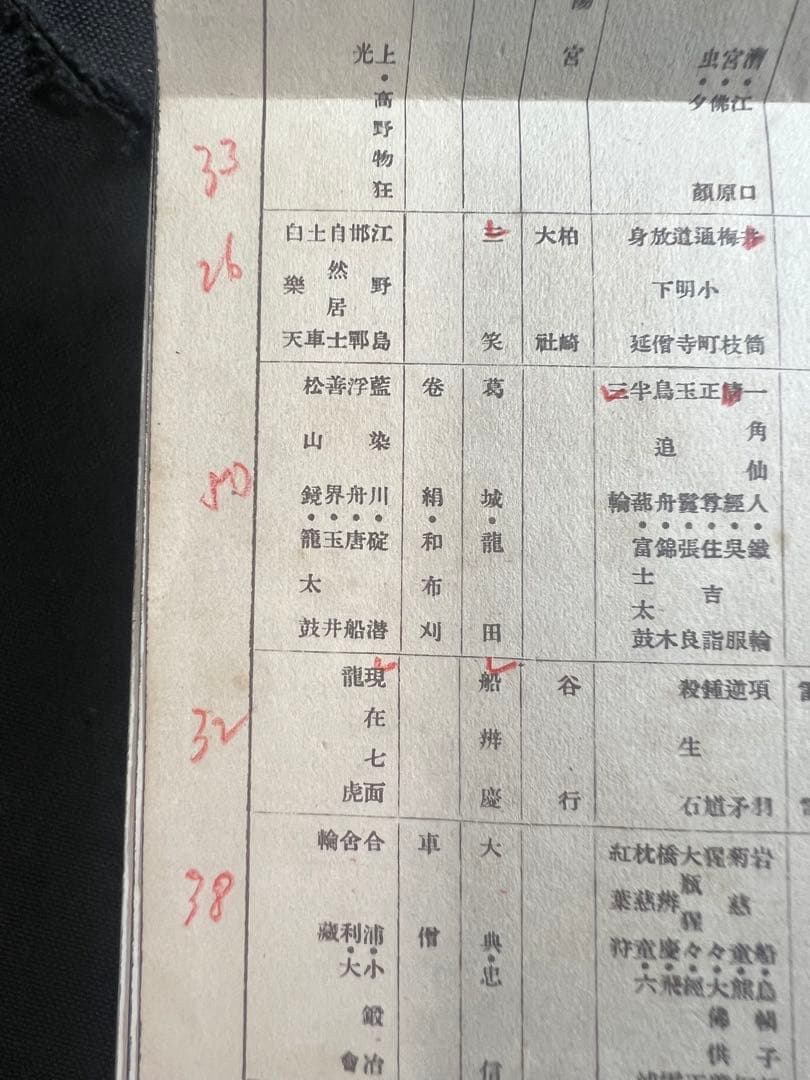 宮
虫
江口
佛原
夕顔
宮
上
光
高野物狂
33
井筒
梅枝
通小町
道明寺
放下僧
身延
柏崎
大社
三笑
江野島
邯鄲
自然居士
土車
白樂天
26
一角仙人
清經
正尊
玉鬘
鳥追舟
半蔀
三輪
鐵輪
吳服
住吉詣
張良
錦木
富士太鼓
葛城
龍田
卷絹
和布刈
藍染川
浮舟
善界
松山鏡
碇潜
唐船
玉井
籠太鼓
50
項羽
逆矛
鍾馗
殺生石
谷行
船辨慶
現在七面
龍虎
32
岩船
菊慈童
猩々
大瓶猩々
橋辨慶
枕慈童
紅葉狩
烏帽子
熊
大佛供
經
飛
六
大典
忠信
車僧
合浦
舍利
輪藏
小鍛冶
大會
38